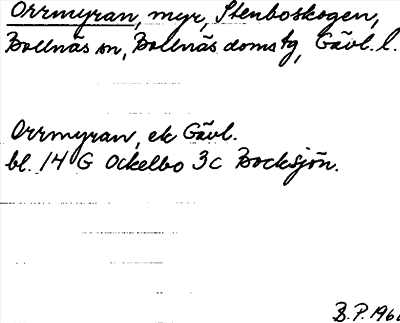 Orrmyran, myr, Stenboskogen,
Bollnäs sn, Bollnäs domstg, Gävl. l.
Orrmyran, ek Gävl.
bl. 14 G Ockelbo 3c Bocksjön.
B.P. 196